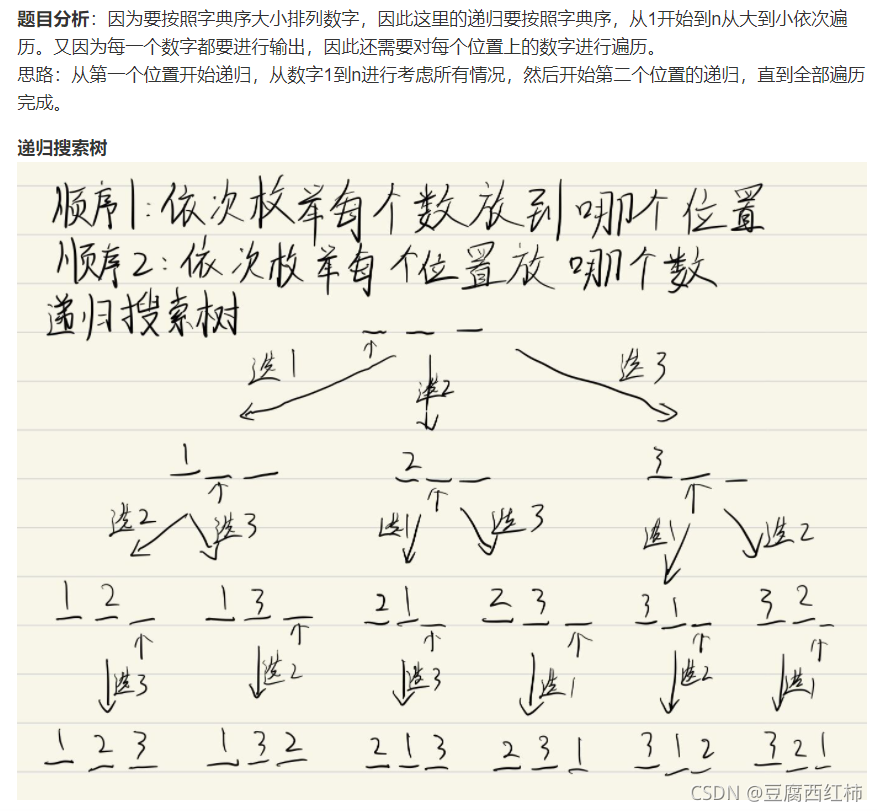 题目分析：因为要按照字典序大小排列数字，因此这里的递归要按照字典序，从1开始到n从大到小依次遍
历。又因为每一个数字都要进行输出，因此还需要对每个位置上的数字进行遍历。
思路：从第一个位置开始递归，从数字1到n进行考虑所有情况，然后开始第二个位置的递归，直到全部遍历
完成。
递归搜索树
顺序1：依次枚举每个数放到哪个位置
顺序2：依次枚举每个位置放哪个数
递归搜索树
选1 选2 选3
1 2 3
选2 选3 选1 选3 选1 选2
1 2 1 3 2 1 2 3 3 1 3 2
选3 选2 选3 选1 选2 选1
1 2 3 1 3 2 2 1 3 2 3 1 3 1 2 3 2 1
CSDN @豆腐西红柿